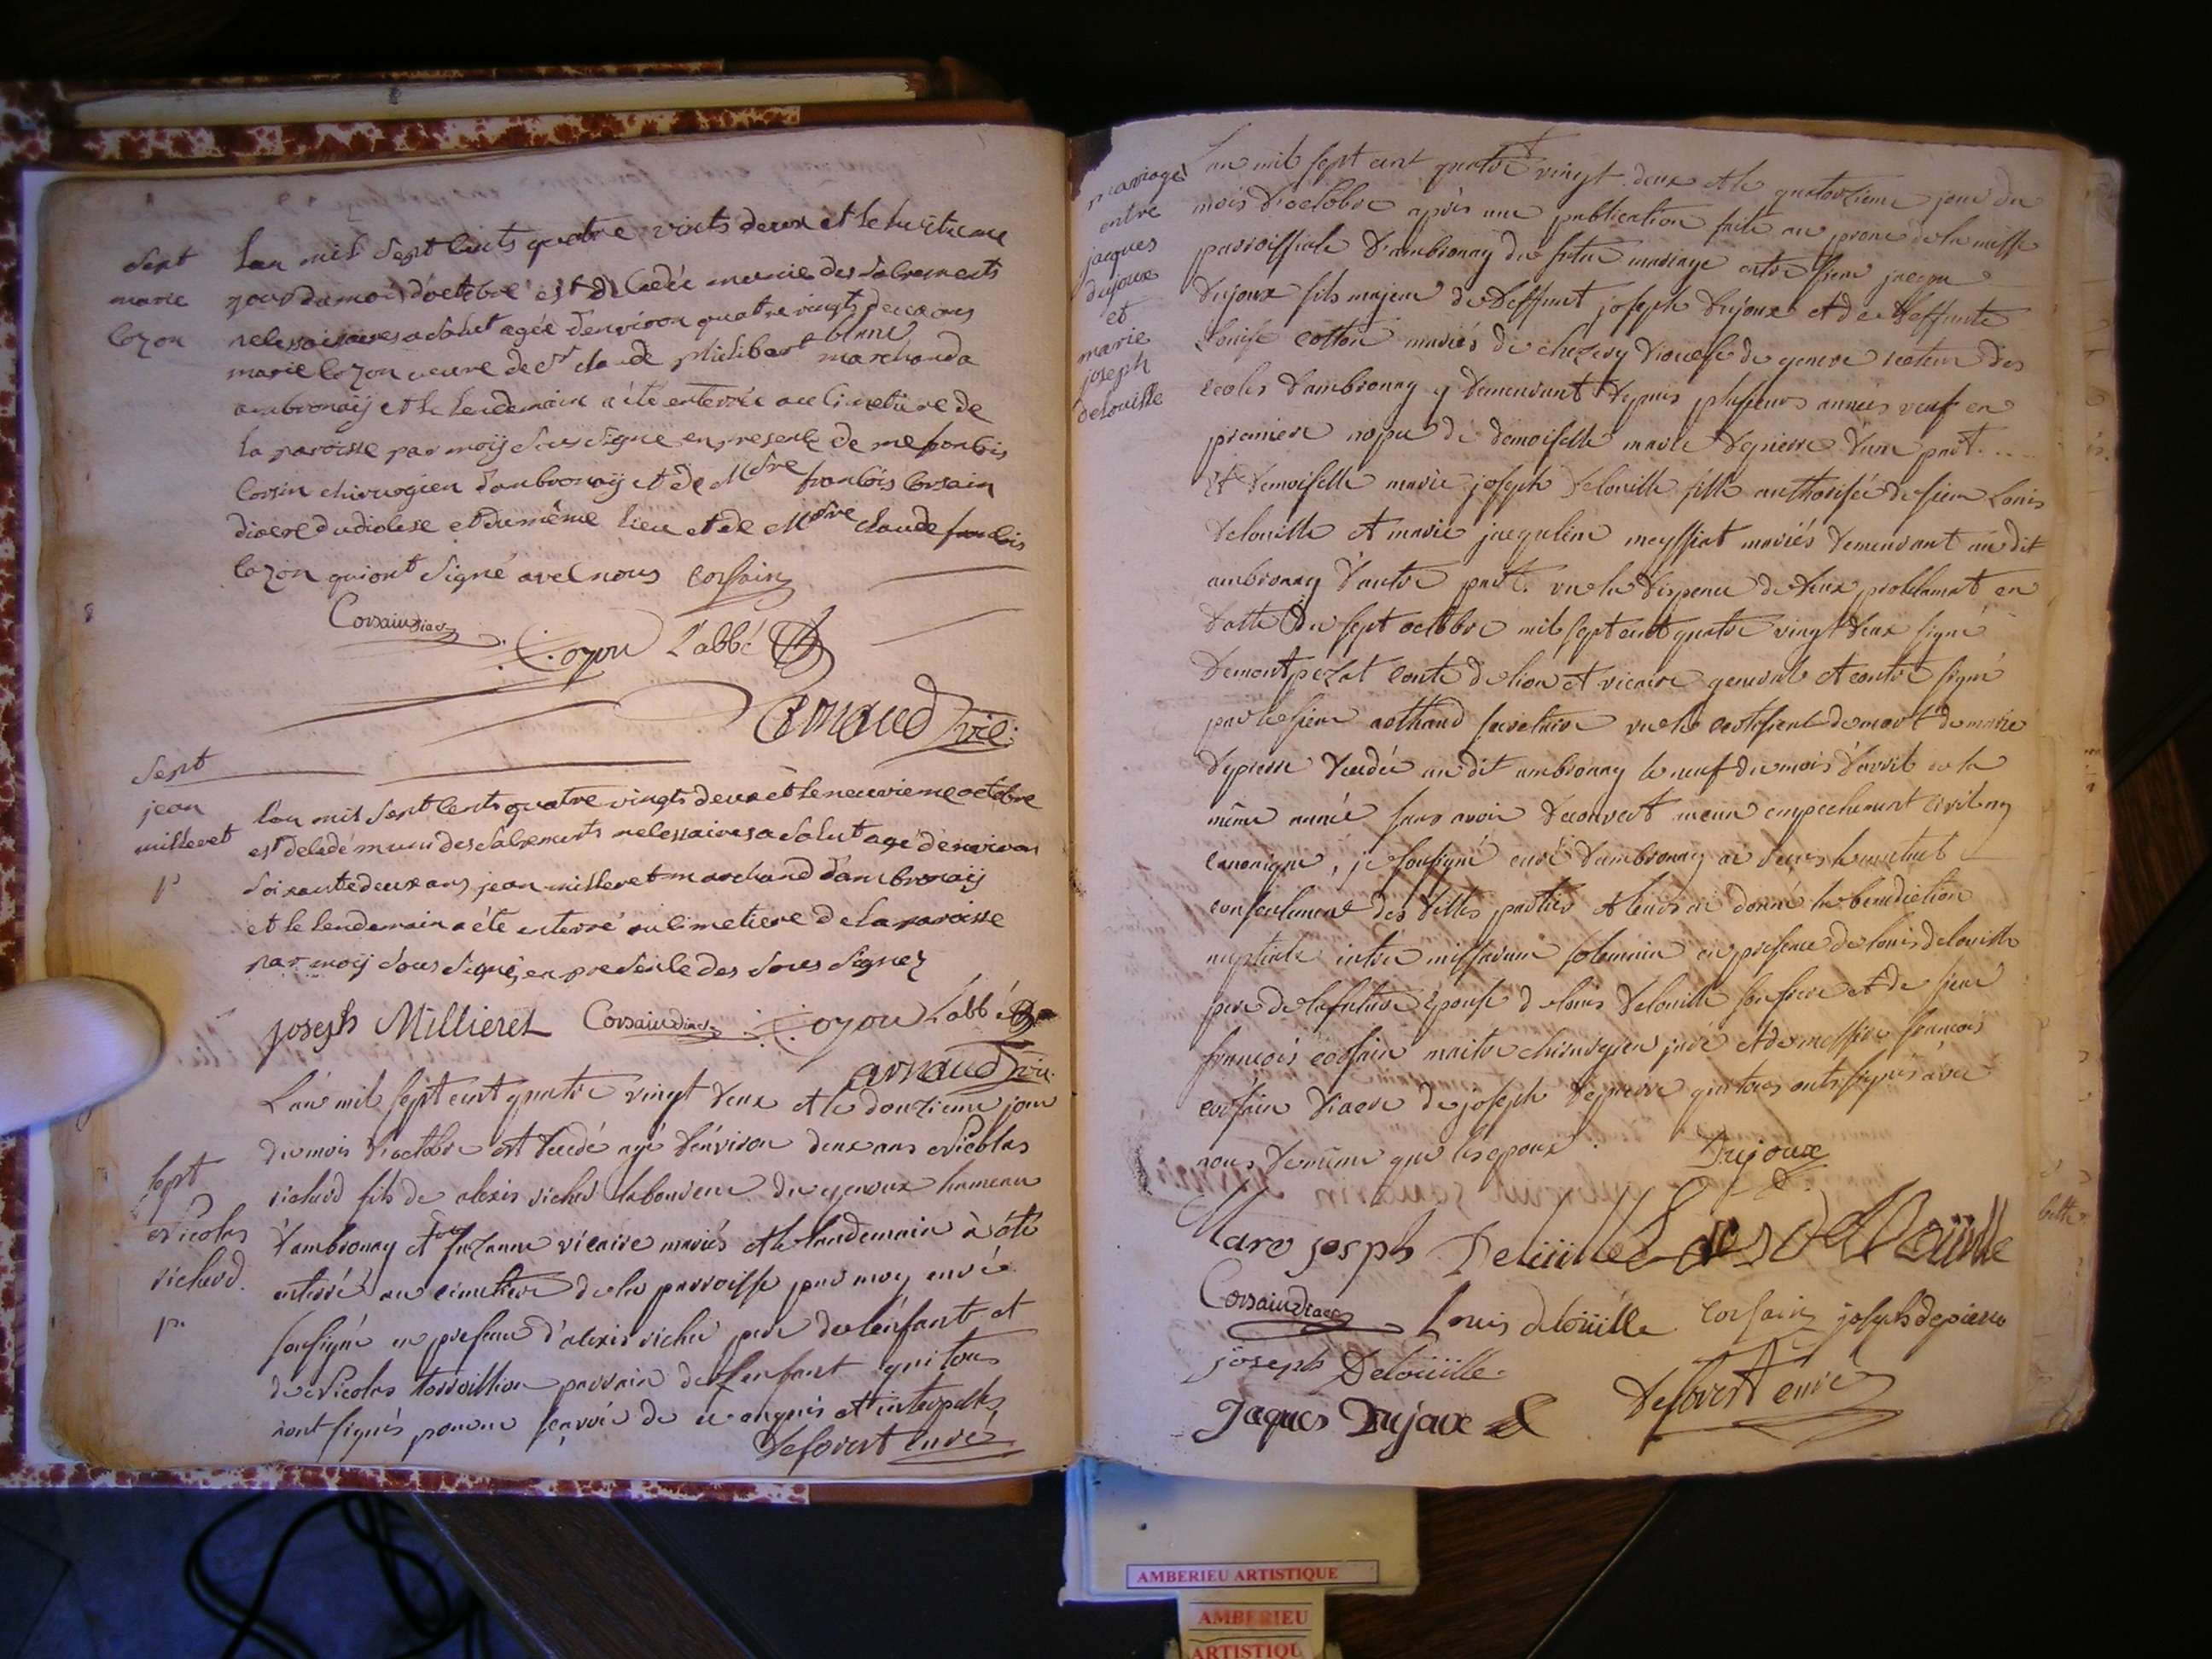 Sept
marie
Cozon
Lan mil Sept Cents quatre vints deux et le huitieme
jour du moi d'octobre est decedée munie des Sacrements
nelessaires a Salut agée d'environ quatre vingts deux ans
marie Cozon veuve de Sr claude philibert blanc marchand a
ambronaÿ et le Lendemain a été enterrée au Cimetiere de
la paroisse par moÿ Sous Signé en presence de me francois
Corsin chirurgien d'ambronaÿ et de Msre francois Corsain
diacre du diocese et du même Lieu et de Msre claude francois
Cozon qui ont Signé avec nous Corsain
Corsain diacre Cozon L'abbé
arnaud vic:
Sept
jean
milleret
p
Lan mil Sept Cents quatre vingts deux et le neuvieme octobre
est decedé muni des Sacrements nelessaires a Salut agé d'environ
Soixante deux ans jean milleret marchand d'ambronaÿ
et le Lendemain a été enterré au Cimetiere de La paroisse
par moÿ Sous Signé, en presence des Sous Signez
joseph Millieret Corsain diacre Cozon L'abbé
arnaud vic.
Sept
Nicolas
richerd.
p.
L'an mil sept cent quatre vingt deux et le douzieme jour
du mois d'octobre est decedé agé d'environ deux ans Nicolas
richerd fils de alexis richer laboureur du genoux hameau
d'ambronay et de Suzanne vicaire mariés et le landemain à été
enterré au cimetiere de la parroisse par moy curé
soussigné en presence d'alexis richer pere de l'enfant et
de Nicolas torvoillion parrain de l'enfant qui tous
nont signés pour ne sçavoir de ce enquis et interpellés
Deforest curé
mariage
entre
jacques
dujoux
et
marie
joseph
delouille
L'an mil sept cent quatre vingt deux et le quatorzieme jour du
mois d'octobre après une publication faite au prone de la messe
parroissiale d'ambronay du futur mariage entre sieur jacque
Dujoux fils majeur de deffunt joseph Dujoux et de deffunte
Louise cotton mariés de chezery Diocese de geneve recteur des
ecoles d'ambronay y demeurant depuis plusieurs années veuf en
premiere nopce de demoiselle marie depierre d'une part...
Et demoiselle marie joseph Delouille fille authorisée de sieur Louis
Delouille et marie jacqueline meyssiat mariés demeurant au dit
ambronay d'autre part. vu la dispence de deux proclamat en
datte du sept octobre mil sept cent quatre vingt deux signé
Demontpezat comte de lion et vicaire general et contre signé
par le sieur authand secretaire vu le certificat de mort de marie
depierre decedée au dit ambronay le neuf du mois d'avril de la
même année sans avoir decouvert aucun empechement civil ny
canonique, je soussigné curé d'ambronay ai reçu le mutuel
consentement des dittes parties et leurs ai donné la benediction
nuptiale intra missarum solemnia en presence de louis delouille
pere de la future épouse de louis delouille son frere et de sieur
françois corsain maitre chirurgien juré et de messire françois
corsain diacre de joseph depierre qui tous ont signés avec
nous de même que les époux. Dujoux
Marv josph Delüille Delloüille
Corsain diacre Louis deloüille corsain joseph depierre
joseph Deloüille
Jaques Dujoux Deforest curé
AMBERIEU ARTISTIQUE
AMBERIEU
ARTISTIQU